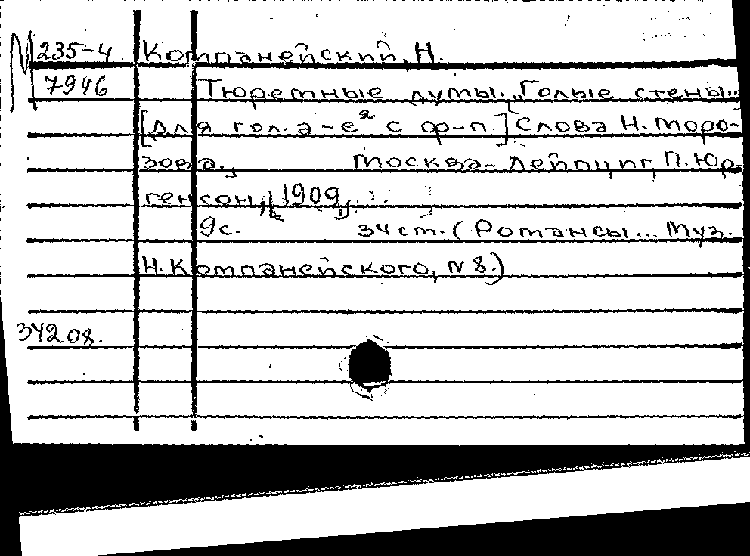 М 235-4 Компанейский, Н.
7946 Тюремные думы. "Голые стены"
[Для гол. a-e² с ф-п.] Слова Н. Моро-
зова. Москва-Лейпциг, П. Юр-
генсон, [1909].
9с. 34 ст. (Романсы... Муз.
Н. Компанейского, №8.)
34208.